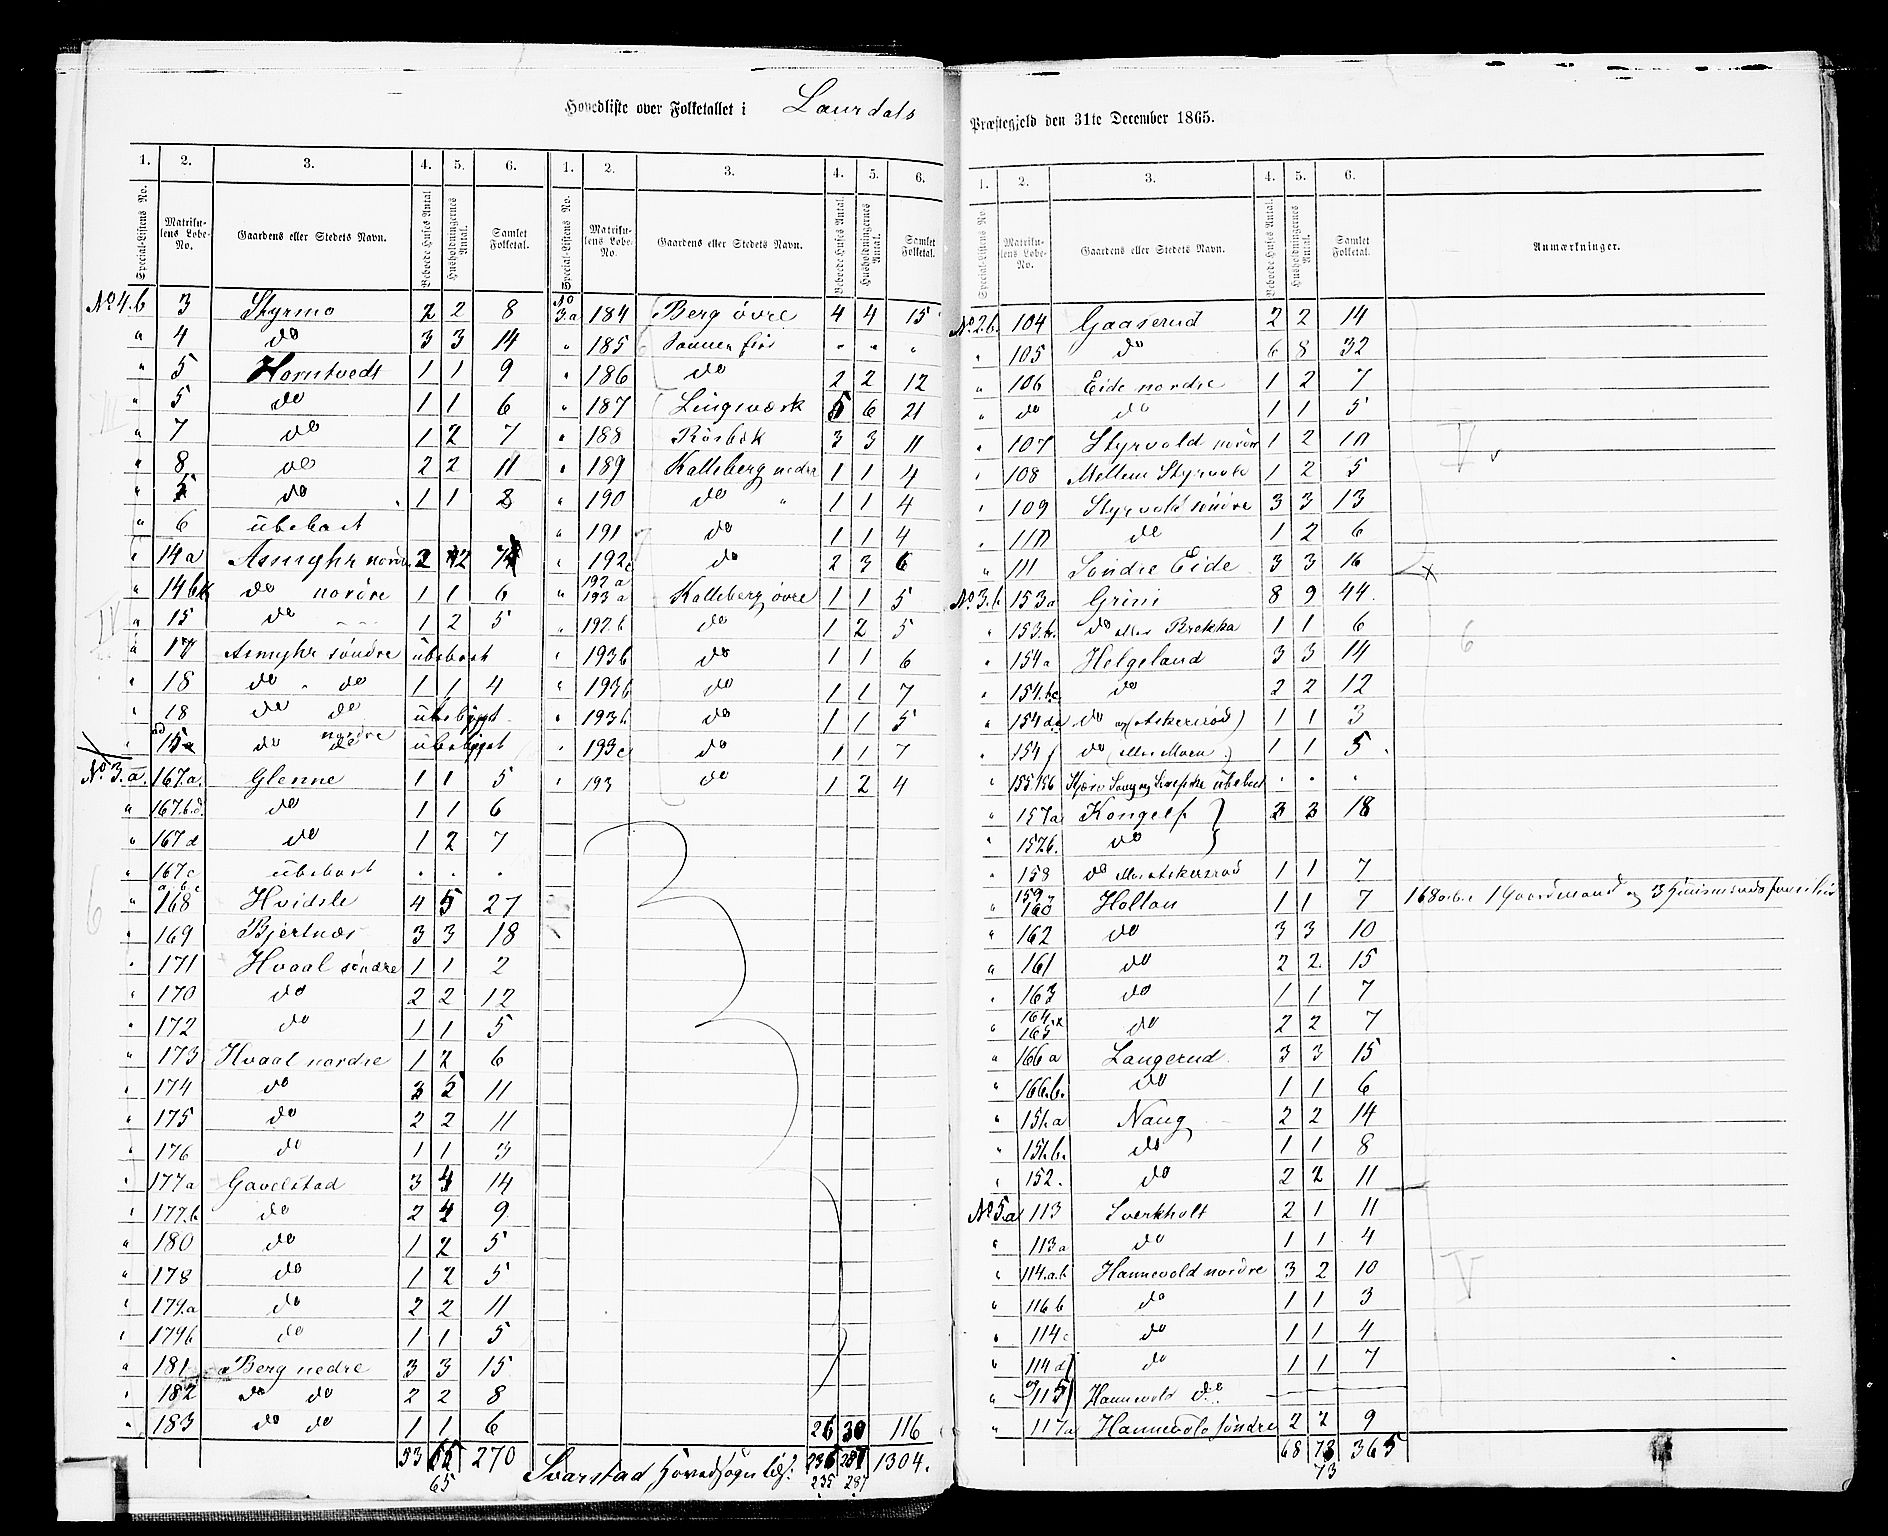 Hovedliste over Folketallet i Laurdals Præstegjeld den 31te December 1865.
1. 2. 3. 4. 5. 6. 1. 2. 3. 4. 5. 6.
Special-Listens No. Matrikulens Løbe-No. Gaardens eller Stedets Navn. Beboede Huses Antal Husholdningernes Antal. Samlet Folketal. Special-Listens No. Matrikulens Løbe-No. Gaardens eller Stedets Navn. Beboede Huses Antal. Husholdningernes Antal. Samlet Folketal.
No 4.b 3 Styrmo 2 2 8
" 4 do 3 3 14
" 5 Horntvedt 1 1 9
" 5 do 1 1 6
" 7 do 1 2 7
" 8 do 2 2 11
" 5 do 1 1 8
" 6 ubeboet
" 14a Asmyhr nordre 2 2 7
" 14b do nordre 1 1 6
" 15 do 1 2 5
" 17 Asmyhr søndre ubeboet
" 18 do do 1 1 4
" 18 do do ubebygget
" 15a do nordre ubebygget
No 3.a. 167a. Glenne 1 1 5
" 167.b.d. do 1 1 6
" 167d do 1 2 7
" 167c ubeboet . . .
" 168 a.b.c Hvidsle 4 5 27
" 169 Bjertnæs 3 3 18
" 171 Hvaal søndre 1 1 2
" 170 do 2 2 12
" 172 do 1 1 5
" 173 Hvaal nordre 1 2 6
" 174 do 3 5 11
" 175 do 2 2 11
" 176 do 1 1 3
" 177a Gavelstad 3 4 14
" 177.b do 2 4 9
" 180 do 1 2 5
" 178 do 1 2 5
" 179.a do 2 2 11
" 179b do 1 1 5
" 181 Berg nedre 3 3 15
" 182 do do 2 2 8
" 183 do do 1 1 6
53 65 270
65
No 3.a 184 Berg øvre 4 4 15
" 185 " " "
" 186 do 2 2 12
" 187 Lingsværk 5 6 21
" 188 Røsbæk 3 3 11
" 189 Kalleberg nedre 1 1 4
" 190 do " 1 1 4
" 191 do 1 1 4
" 192c do 2 3 6
" 192a 193a Kalleberg øvre 1 1 5
" 192.b do 1 2 5
" 193b do 1 1 6
" 193b do 1 1 7
" 193b do 1 1 5
" 193c do 1 1 7
" 193 do 1 2 4
26 30 116
Svarstad Hovedsogn 235 287 1304.
235 287
1. 2. 3. 4. 5. 6.
Special-Listens No Matrikulens Løbe-No. Gaardens eller Stedets Navn. Beboede Huses Antal. Husholdningernes Antal. Samlet Folketal. Anmærkninger.
No. 2.b. 104 Gaaserud 2 2 14
" 105 do 6 8 32
" 106 Eide nordre 1 2 7
" do do 1 1 5
" 107 Styrvold nordre 1 2 10
" 108 Mellem Styrvold 1 2 5
" 109 Styrvold søndre 3 3 13
" 110 do 1 2 6
" 111 Søndre Eide 3 3 16
No. 3.b 153a Grini 8 9 44.
" 153.b. do eller Brekka 1 1 6
" 154a Helgeland 3 3 14
" 154.b.c. do 2 2 12
" 154de do og (Askerød) 1 1 3
" 154f do (eller Moen) 1 1 5
" 155.156 ubeboet . . .
" 157a Kongelf 3 3 18
" 157b. do
" 158 do eller Askersrød 1 1 7
" 159 160 Holtan 1 1 7 168a.b.c 1 Gaardmand og 3 Huusmandsfamilier
" 162 do 3 3 10
" 161 do 2 2 15
" 163 do 1 1 7
" 164 165 do 2 2 7
" 166a Langerud 3 3 15
" 166.b. do 1 1 6
" 151.a Naug 2 2 14
" 151.b. do 1 1 8
" 152. do 2 2 11
No 5.a 113 Sverkholt 2 1 11
" 113a do 1 1 4
" 114.a.b Hannevold nordre 3 2 10
" 116b do 1 1 3
" 114c do 1 1 4
" 114d do 1 1 7
" og 115 Hannevold do
" 117a Hannevold søndre 2 2 9
68 73 365
73